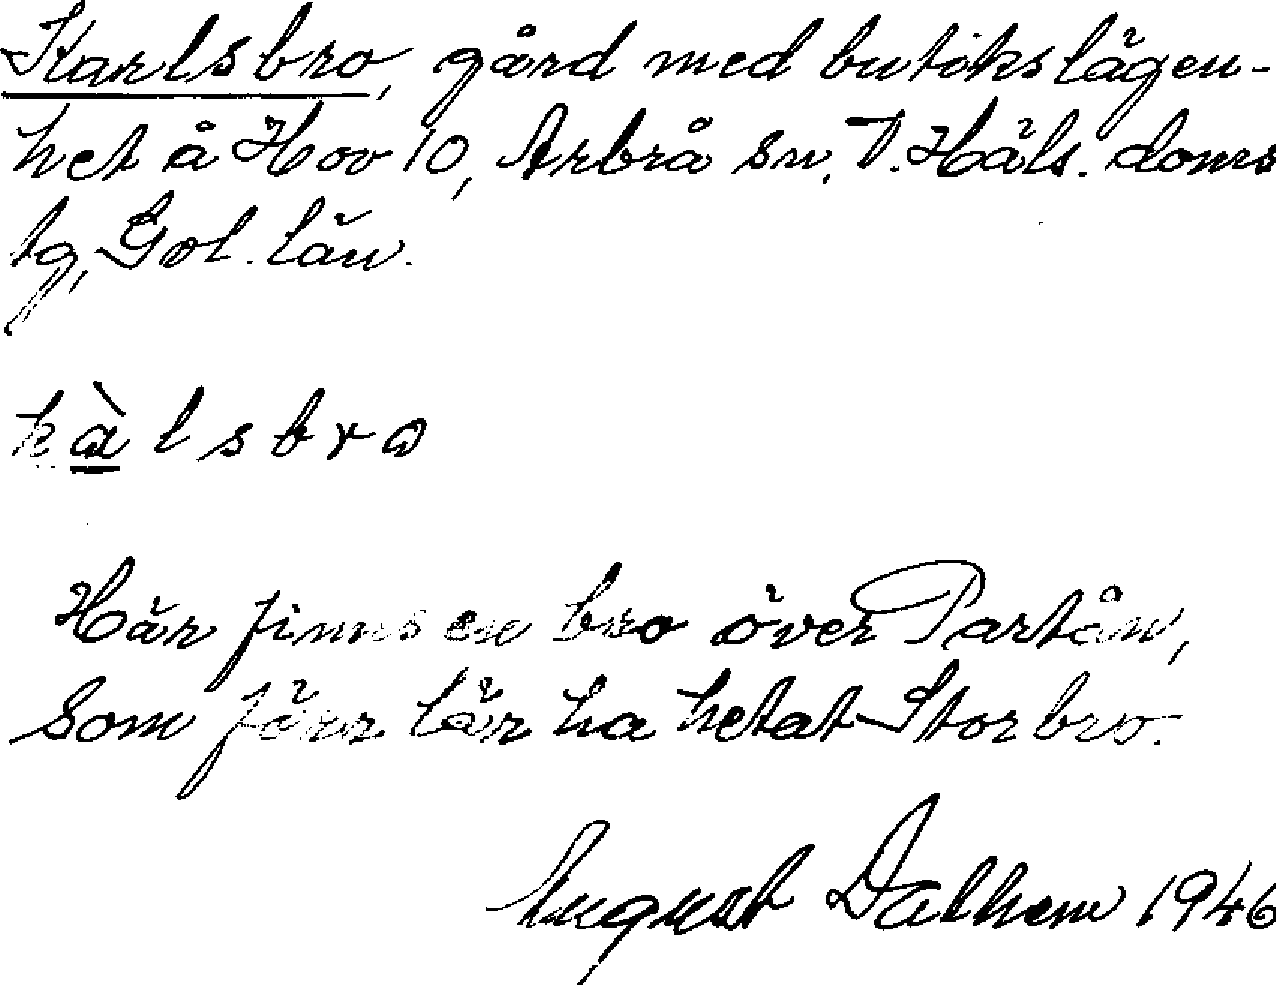 Karlsbro, gård med butikslägen-
het å Hov 10, Arbrå sn, V. Häls. doms
tg, Gäl. län.
kàlsbro
Här finns en bro över Partån,
som förr lär ha hetat Storbro.
August Dalhem 1946